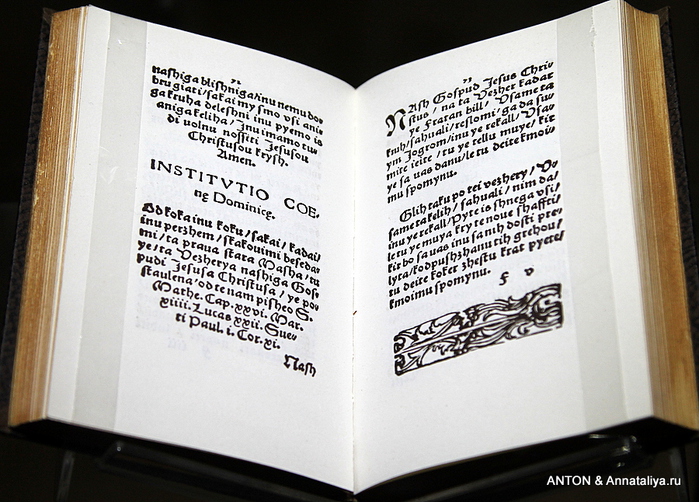 72
nashiga blishniga/inu nemu dos
bru giati/sakai my smo vsi anis
ga kruha deleshni inu pyemo is
aniga keliha/Inu imamo tus
di uolnu nossiti Jesusou
Christusou krysh.
Amen.
INSTITVTIO COE-
nę Dominicę.
Od koka inu koku/sakai/kadai/
inu pershem/skakouimi besedas
mi/ta praua stara Masha/tu
ye/ta Vezherya nashiga Gos-
pudi Jesusa Christusa/ye pos
staulena/od te nam pisheo S.
Mathe. Cap. xxvi. Mar.
xiiii. Lucas xxii. Sue-
ti Paul. i. Cor. xi.
Nash
73
NAsh Gospud Jesus Chris
stus/na ta Vezher kadar
ye Fratan bill/Vsame ta
kruh/sahuali/reslomi/ga da su
ym Jogrom/inu ye rekall/Vsa-
mite ieite/tu ye tellu muye/kir
ye sa uas danu/le tu deite kmoi-
mu spomynu.
Glih taku po tei vezhery/Vs
same ta kelih/sahuali/nim da/
inu ye rekall/Pyte is shnega vsi/
le tu ye muya kry te noue shafftri/
kir bo sa uas inu sa nih dosti pre-
lyta/kodpushzhanu tih grehou/
tu deite koker zhestu krat pyete/
kmoimu spomynu.
ANTON & Annataliya.ru